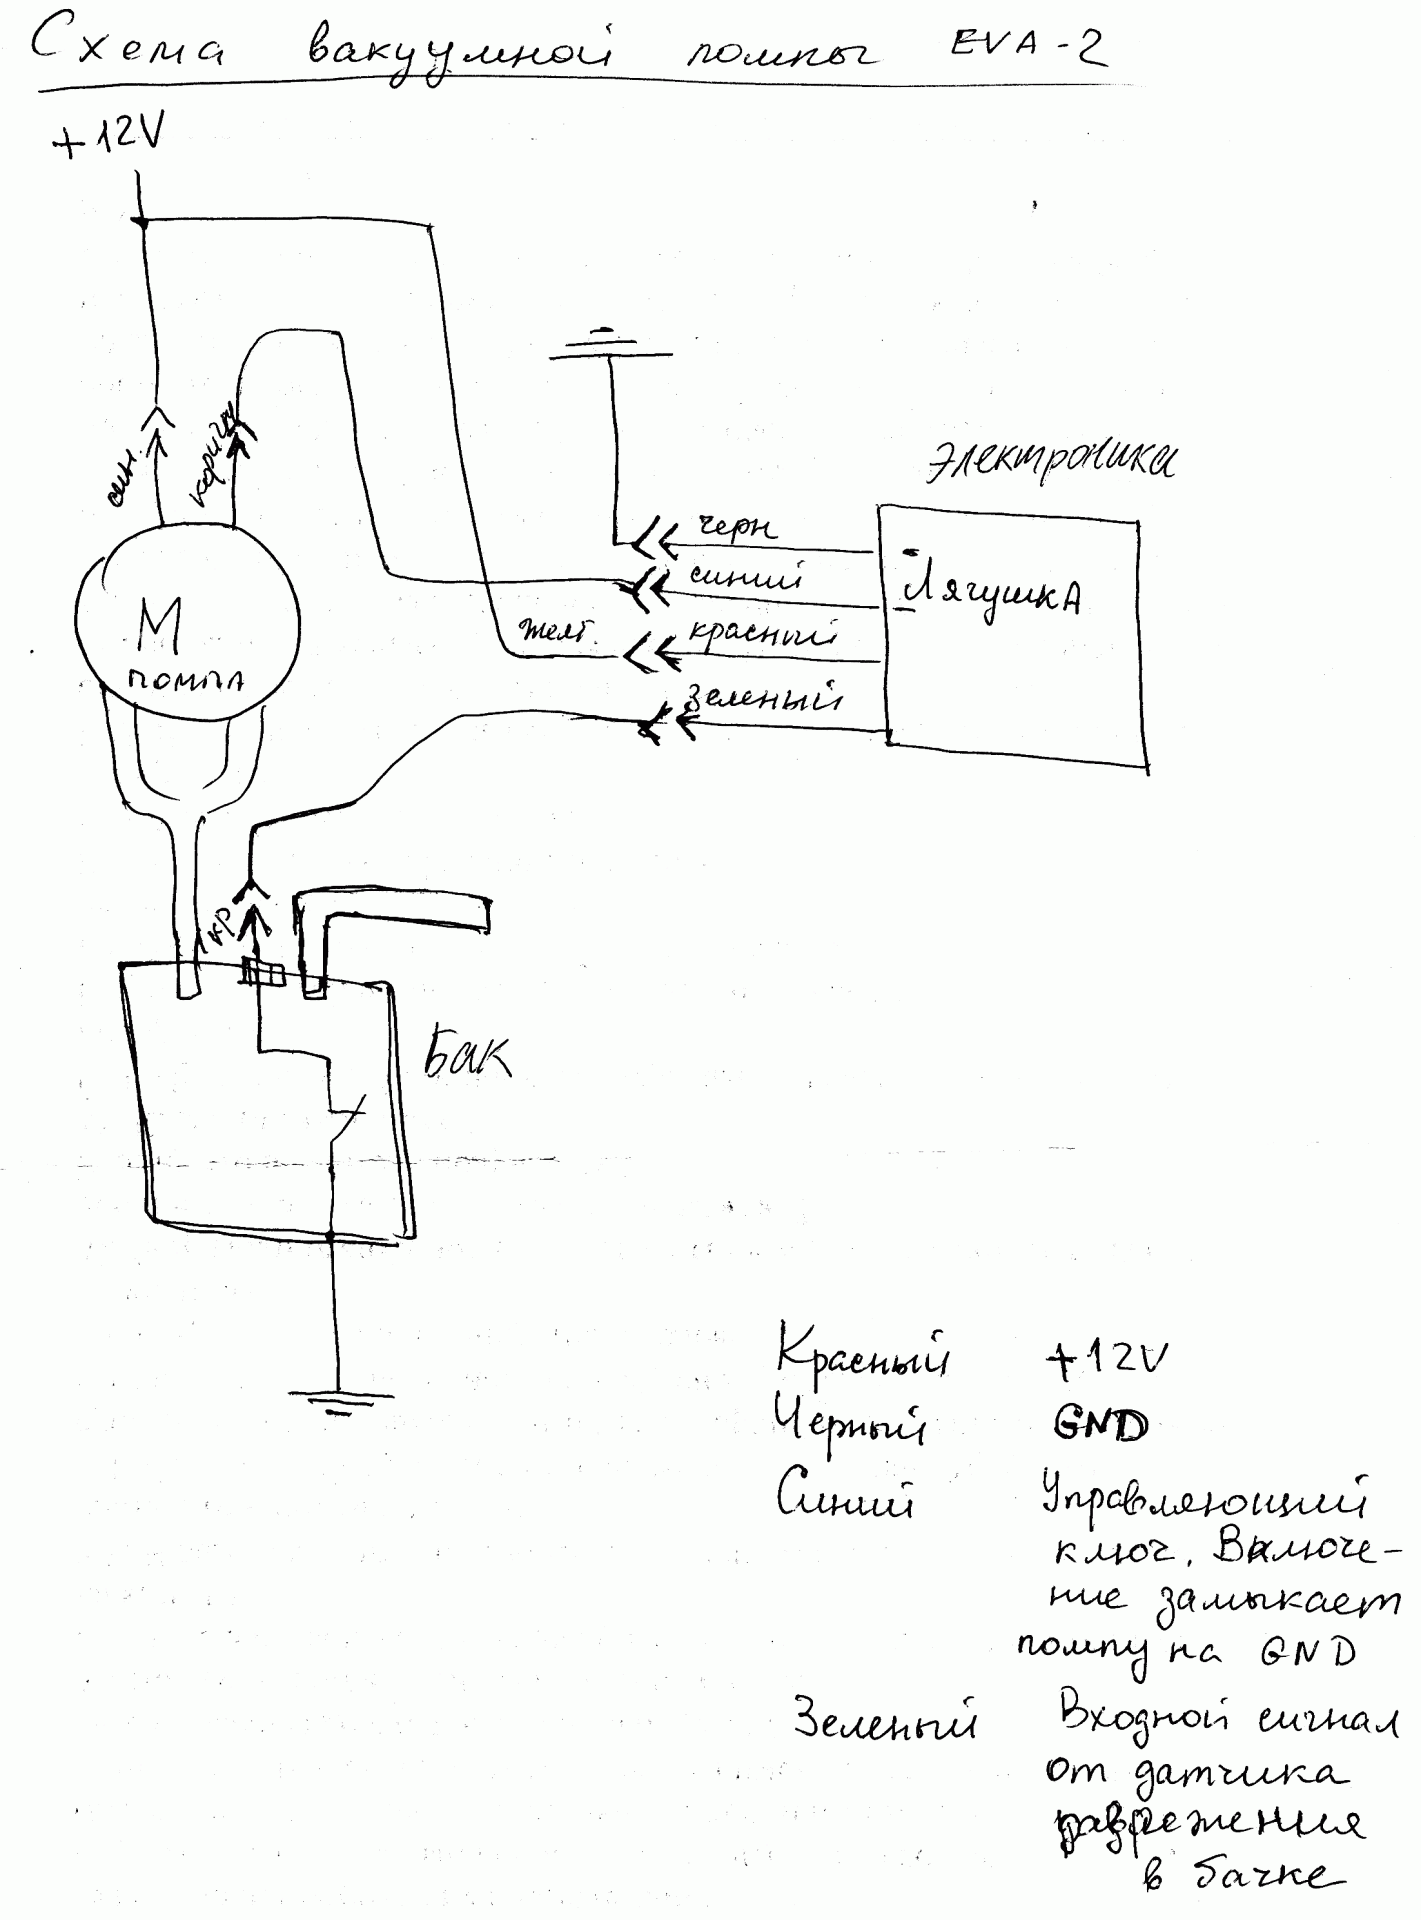 Схема вакуумной помпы EVA-2
+12V
син.
коричн
Электроника
черн
синий
Лягушка
желт.
красный
зеленый
М
помпа
кр
Бак
Красный +12V
Черный GND
Синий Управляющий
ключ. Включе-
ние замыкает
помпу на GND
Зеленый Входной сигнал
от датчика
разрежения
в бачке